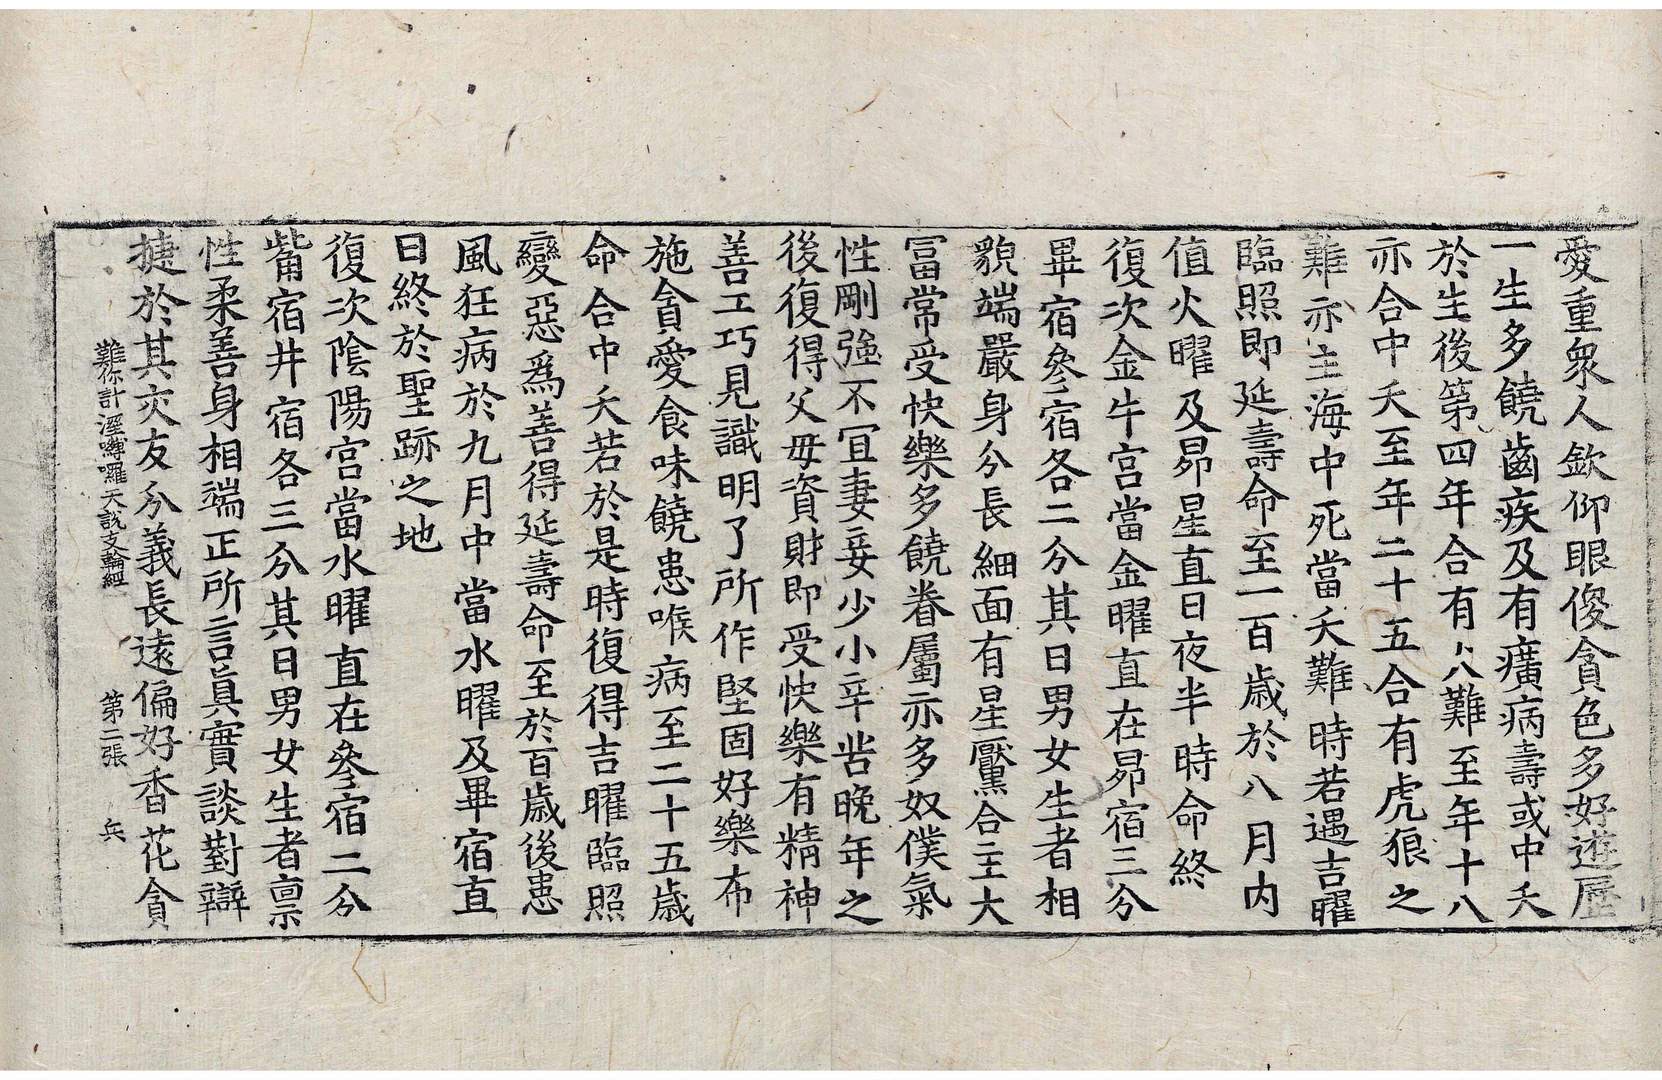 愛重衆人欽仰眼傻貪色多好遊歷
一生多饒齒疾及有癀病壽或中夭
於生後第四年合有水難至年十八
亦合中夭至年二十五合有虎狼之
難亦主海中死當夭難時若遇吉曜
臨照即延壽命至一百歲於八月内
值火曜及昴星直日夜半時命終
復次金牛宮當金曜直在昴宿三分
畢宿參宿各二分其日男女生者相
貌端嚴身分長細面有星黶合主大
冨常受快樂多饒眷屬亦多奴僕氣
性剛強不冝妻妾少小辛苦晚年之
後復得父母資財即受快樂有精神
善工巧見識明了所作堅固好樂布
施貪愛食味饒患喉病至二十五歲
命合中夭若於是時復得吉曜臨照
變惡爲善得延壽命至於百歲後患
風狂病於九月中當水曜及畢宿直
日終於聖跡之地
復次陰陽宮當水曜直在參宿二分
觜宿井宿各三分其日男女生者禀
性柔善身相端正所言眞實談對辯
捷於其交友分義長遠偏好香花貪
難你計溼嚩囉天說支輪經 第二張 兵